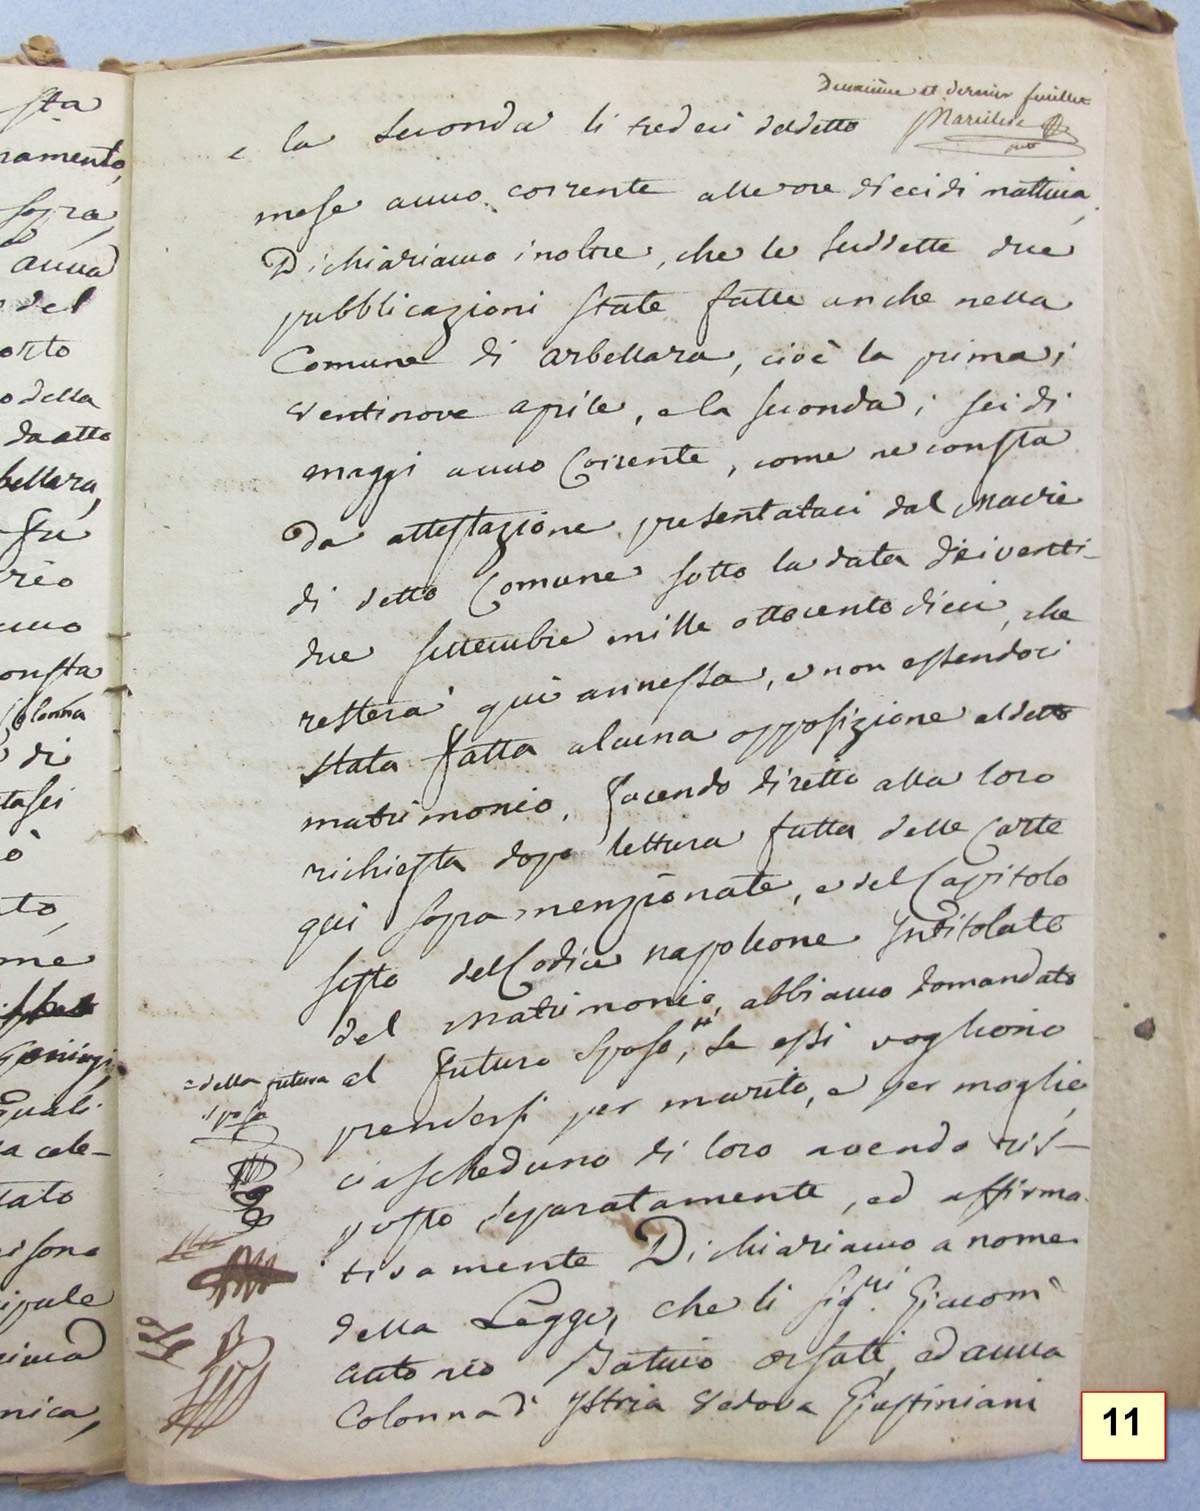 Deuxième et dernier feuillet
e la seconda li tredeci deldetto
mese anno corrente alle ore dieci di mattina,
Dichiariamo inoltre, che le suddette due
pubblicazioni state fatte anche nella
Comune di arbellara, cioè la prima i
ventinove aprile, e la seconda i sei di
maggi anno Corrente, come ne consta
da attestazione presentataci dal Maire
di detto Comune sotto la data dei venti-
due settembre mille ottocento dieci, che
restera' qui annessa, e non essendoci
stata fatta alcuna opposizione aldetto
matrimonio, facendo diretto alla loro
richiesta dopo lettura fatta delle Carte
qui sopra menzionate, e del Capitolo
sesto del Codice napoleone Intitolato
del Matrimonio, abbiamo domandato
al futuro sposo, se essi vogliono
e della futura
sposa
prendersi per marito, e per moglie,
ciascheduno di loro avendo ris-
posto separatamente, ed affirma-
tivamente Dichiariamo a nome
della Legge, che li sig.ri Giacom'
antonio Orsatti, ed anna
Colonna d'Istria vedova Giustiniani
sta
ramento,
sopra,
anna
del
orto
o della
da atto
bellara,
fu
uno
onsta
Colonna
di
tasei
ò
to,
me
quali
a cele-
tato
ersona
ipale
nica,
11